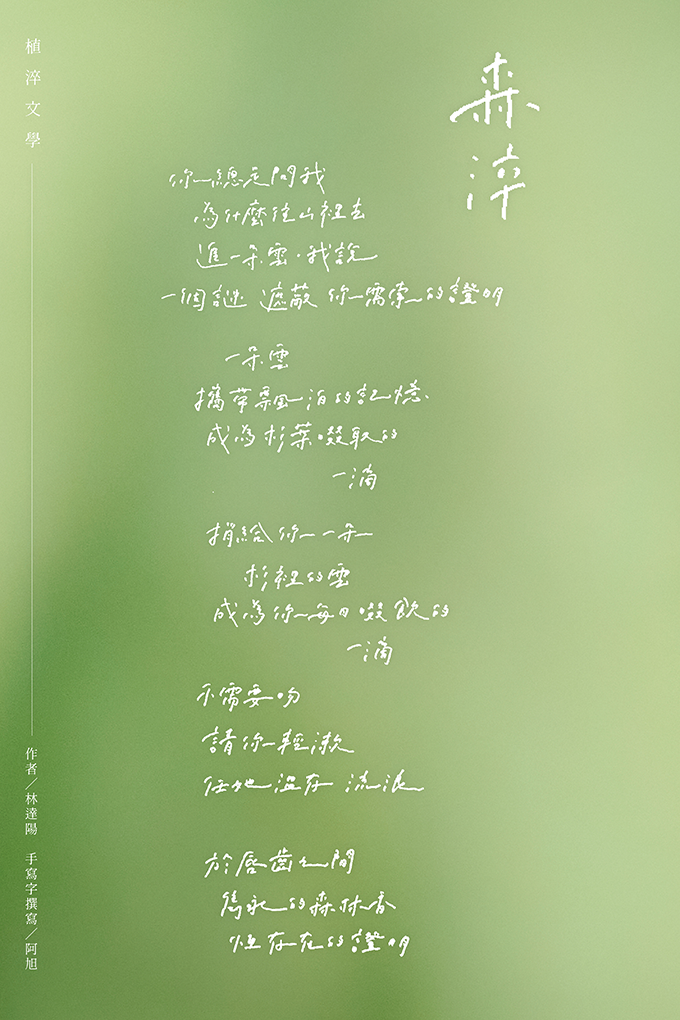 植淬文學
森淬
你總是問我
為什麼往山裡去
進一朵雲,我說
一個謎 遮蔽 你需索的證明
一朵雲
攜帶飄泊的記憶
成為杉葉啜取的
一滴
捎給你一朵
杉裡的雲
成為你每日啜飲的
一滴
不需要吻
請你輕漱
任她溫存 流浪
於唇齒之間
雋永的森林香
恆存在的證明
作者/林達陽 手寫字撰寫/阿旭